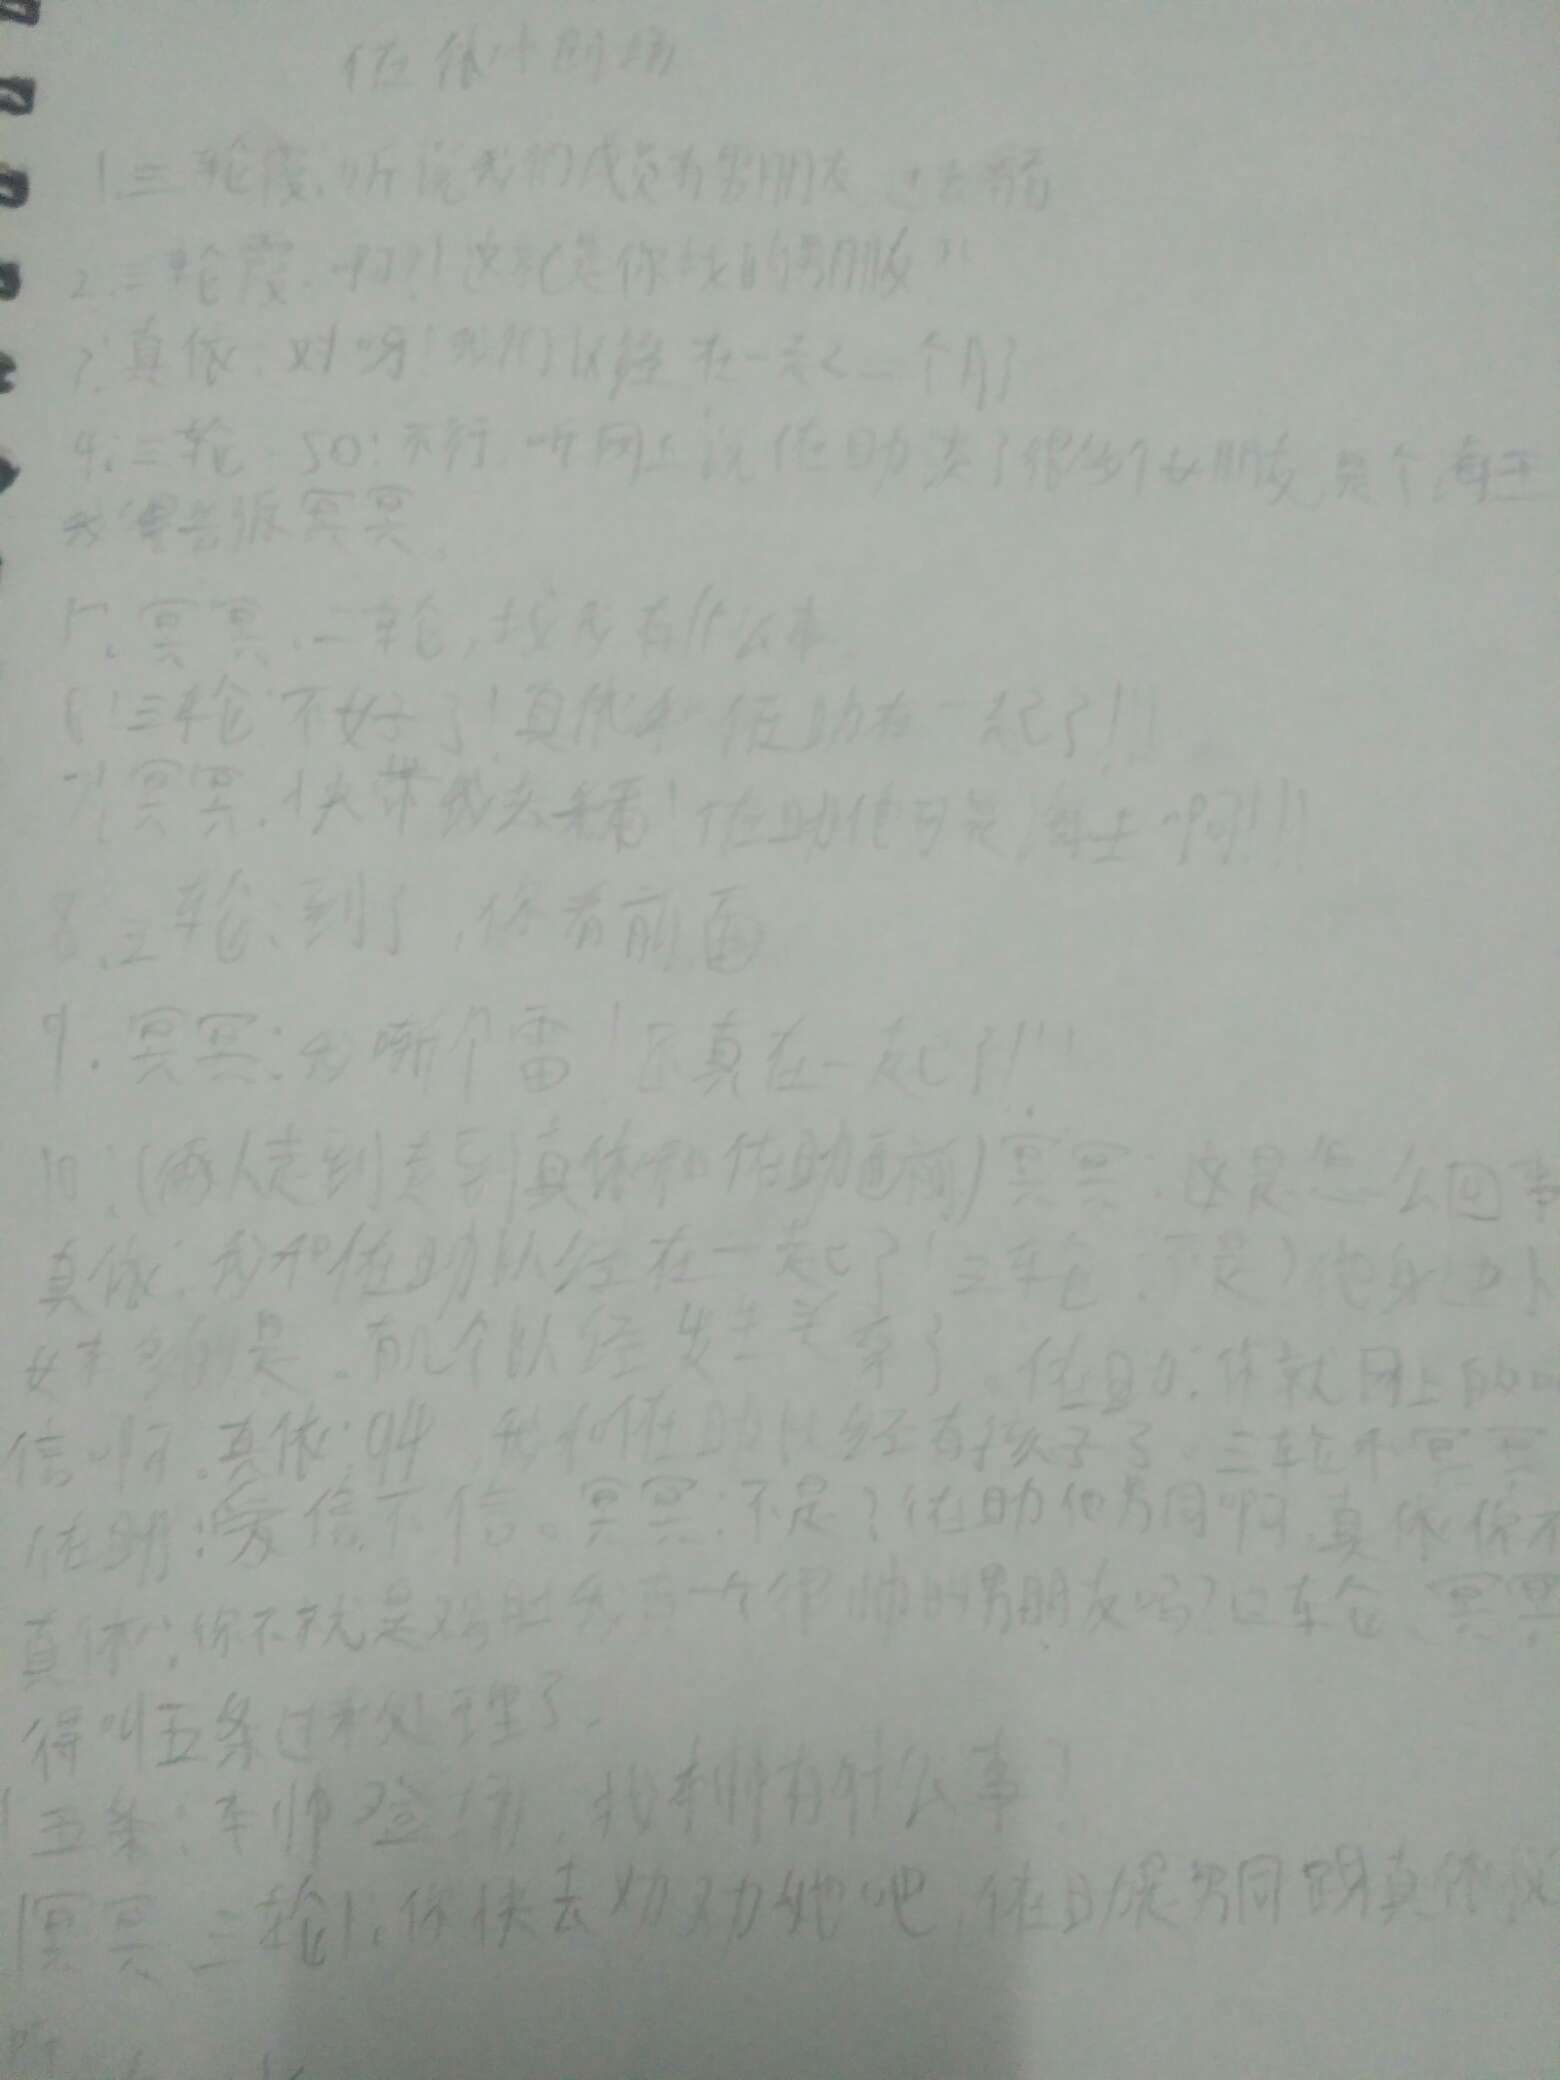 佐依小剧场
1.三轮霞:听说我的成员有男朋友,过去看看
2.三轮霞:啊?!这就是你找的男朋友?!
3.真依:对呀!我们以经在一起二个月了
4.三轮:so:不行,听网上说佐助卖了很多个女朋友,是个海王
我得告诉冥冥。
5.冥冥:三轮,找我有什么事
6.三轮:不好了!真依和佐助在一起了!!!
7.冥冥:快带我去看看!佐助他可是海王啊!!!
8.三轮:到了,你看前面
9.冥冥:我嘞个雷!还真在一起了!!!
10.(两人走到走到真依和佐助面前)冥冥:这是怎么回事
真依:我和佐助以经在一起了!三轮:不是?他身边
女友多的是。有几个以经发生关系了。佐助:你就网上的
信啊。真依:94,我和佐助以经有孩子了。三轮和冥冥
佐助:爱信不信。冥冥:不是?佐助他男同啊,真依你不
真依:你不就是 我有一个很帅的男朋友吗?三轮、冥冥
得叫五条过来处理了。
五条:本帅登场,找本帅有什么事?
冥冥三轮:你快去劝劝她吧,佐助是男同跟真依